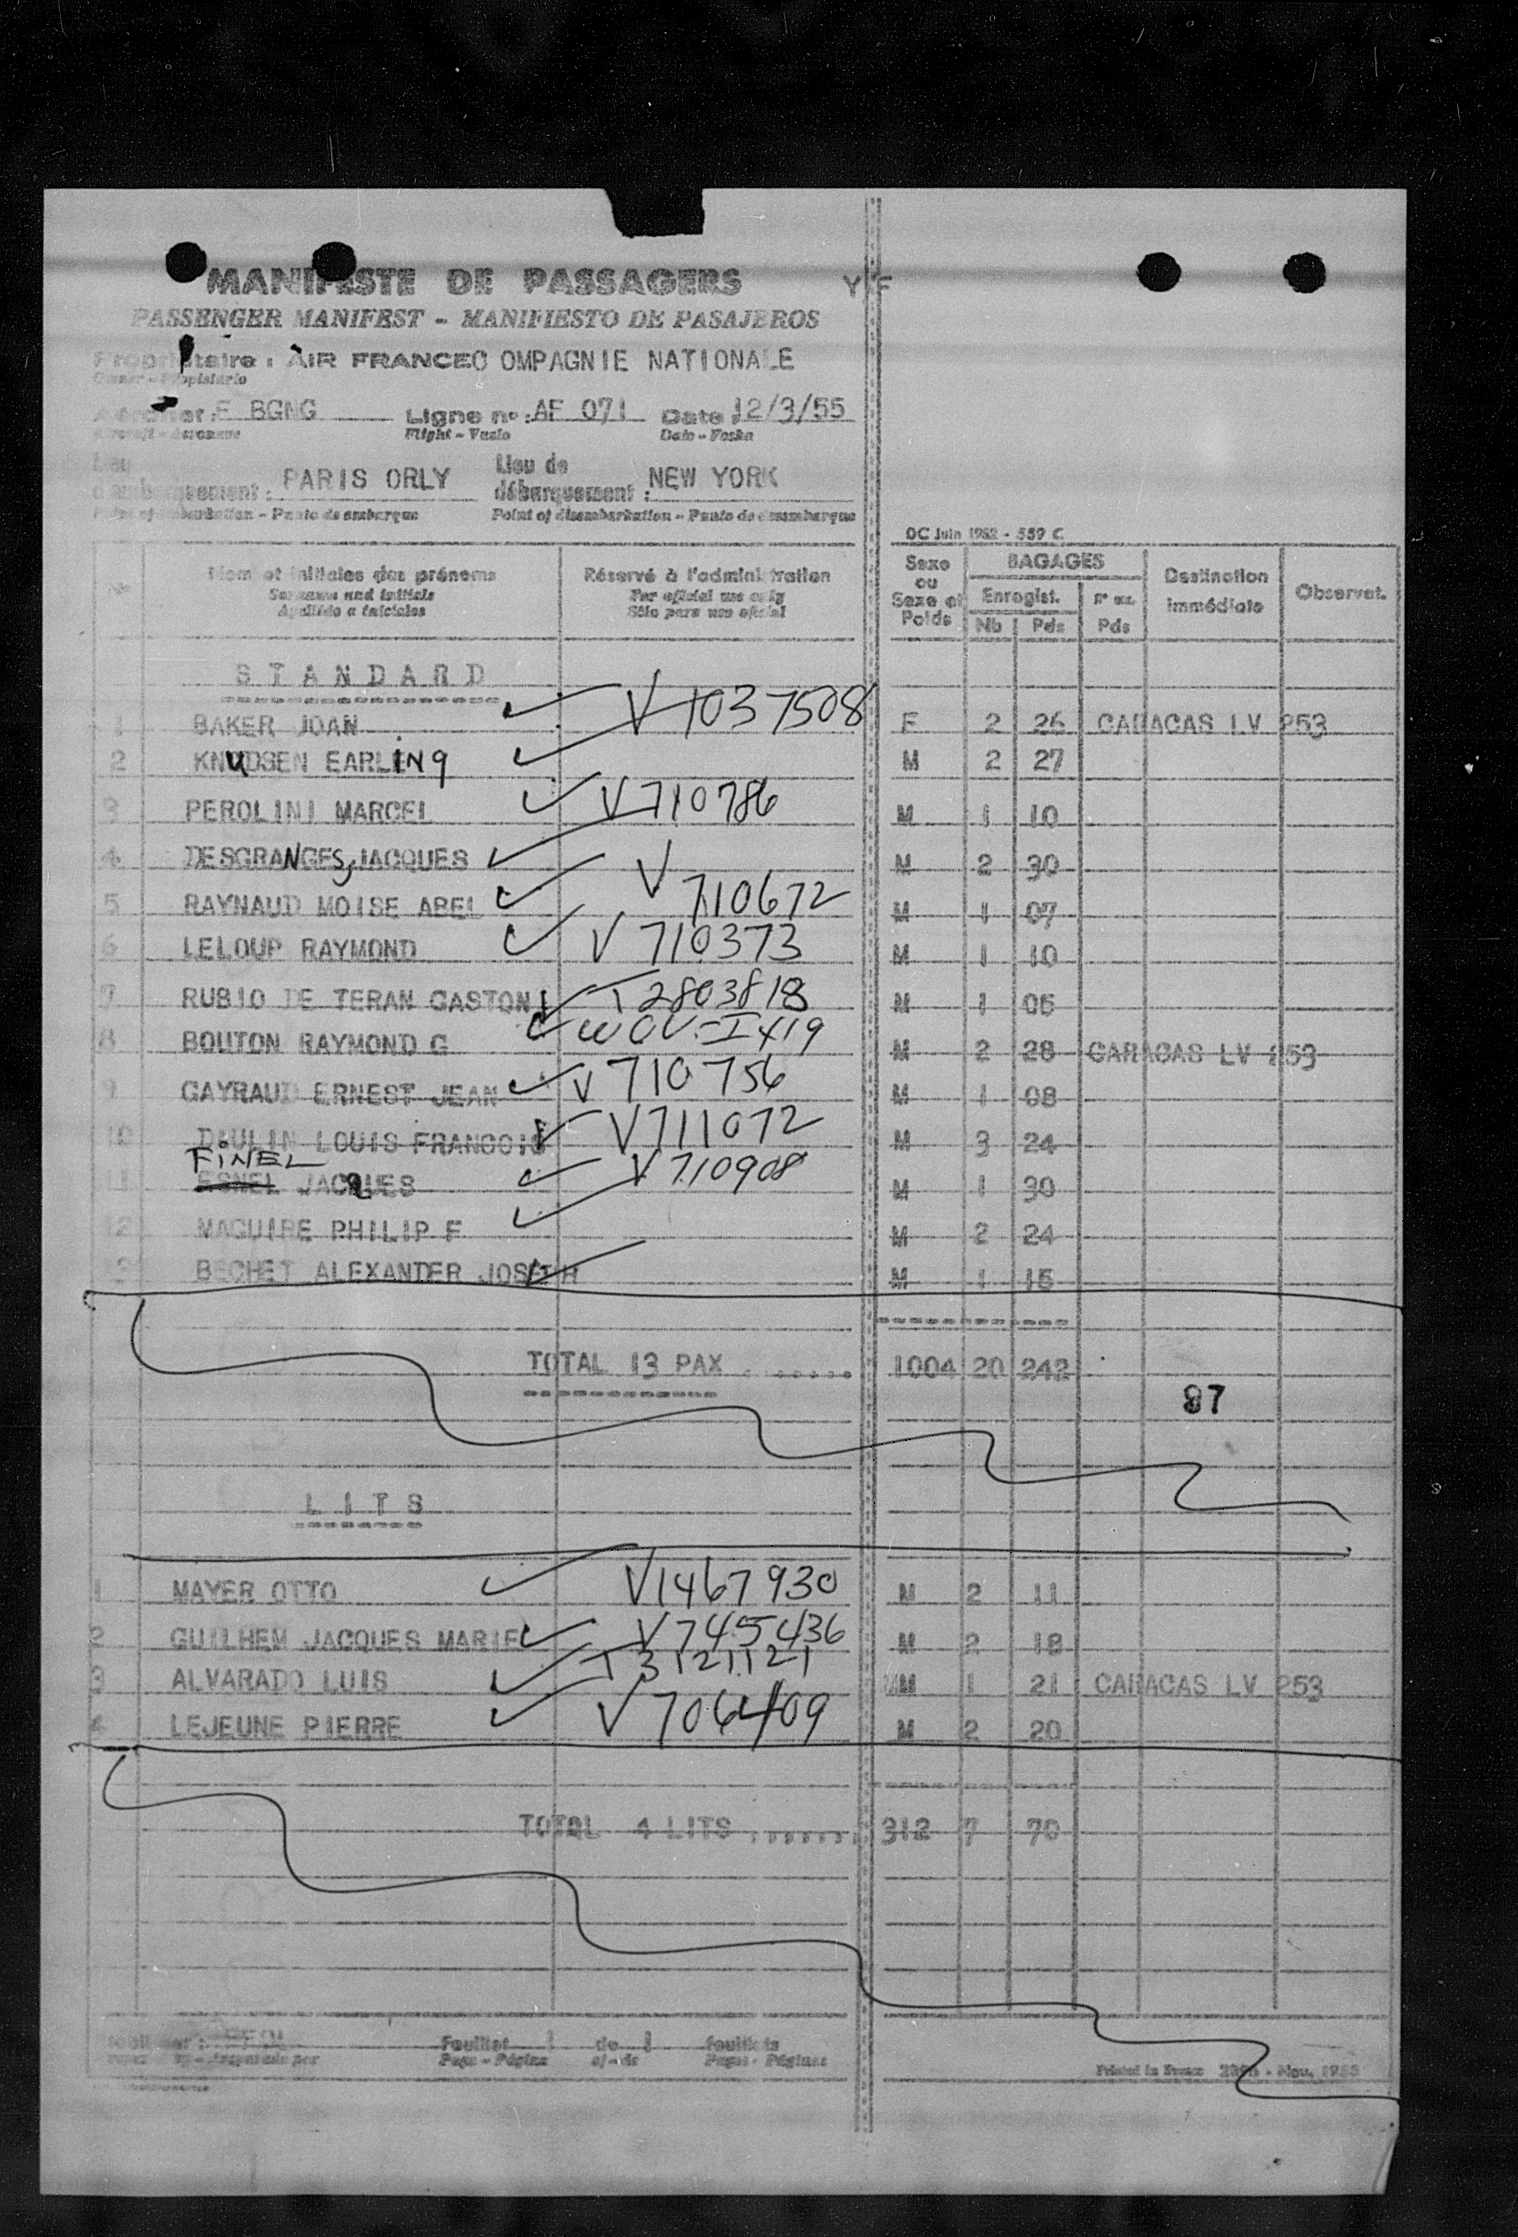 MANIFESTE DE PASSAGERS
PASSENGER MANIFEST - MANIFIESTO DE PASAJEROS
Propriétaire : AIR FRANCEC OMPAGNIE NATIONALE
F BGNG Ligne nº : AF 071 Date 12/3/55
Flight - Date -
PARIS ORLY Lieu de débarquement : NEW YORK
Point of disembarkation - Punto de desembarque
OC Juin 1952 - 559 C
Nom et initiales des prénoms Réservé à l'administration Sexe ou Sexe et Poids BAGAGES Destination immédiate Observat.
Surname and initials For official use only Enregist.
Apellido e iniciales Sólo para uso oficial Nb Pds Pds
STANDARD
1 BAKER JOAN V 1037508 F 2 26 CARACAS LV 253
2 KNUDSEN EARLING M 2 27
3 PEROLINI MARCEL V 710786 M 1 10
4 DESGRANGES, JACQUES V M 2 30
5 RAYNAUD MOISE ABEL 710672 M 1 07
6 LELOUP RAYMOND V 710373 M 1 10
7 RUBIO DE TERAN GASTON T 2803818 M 1 05
8 BOUTON RAYMOND G M 2 28 CARACAS LV 253
9 GAYRAUD ERNEST JEAN V 710756 M 1 08
10 LOUIS FRANCOIS V 711072 M 3 24
FINEL
11 JACQUES V 710908 M 1 30
12 MAGUIRE PHILIP F M 2 24
13 BECHET ALEXANDER JOSEPH M 1 15
TOTAL 13 PAX ....... 1004 20 242
97
LITS
1 MAYER OTTO V 1467930 M 2 11
2 GUILHEM JACQUES MARIE V 745436 M 2 18
3 ALVARADO LUIS T 3121121 M 1 21 CARACAS LV 253
4 LEJEUNE PIERRE V 706409 M 2 20
TOTAL 4 LITS ....... 312 7 70
Feuillet 1 de 1 feuillets
Page - Página of - de Pages - Páginas